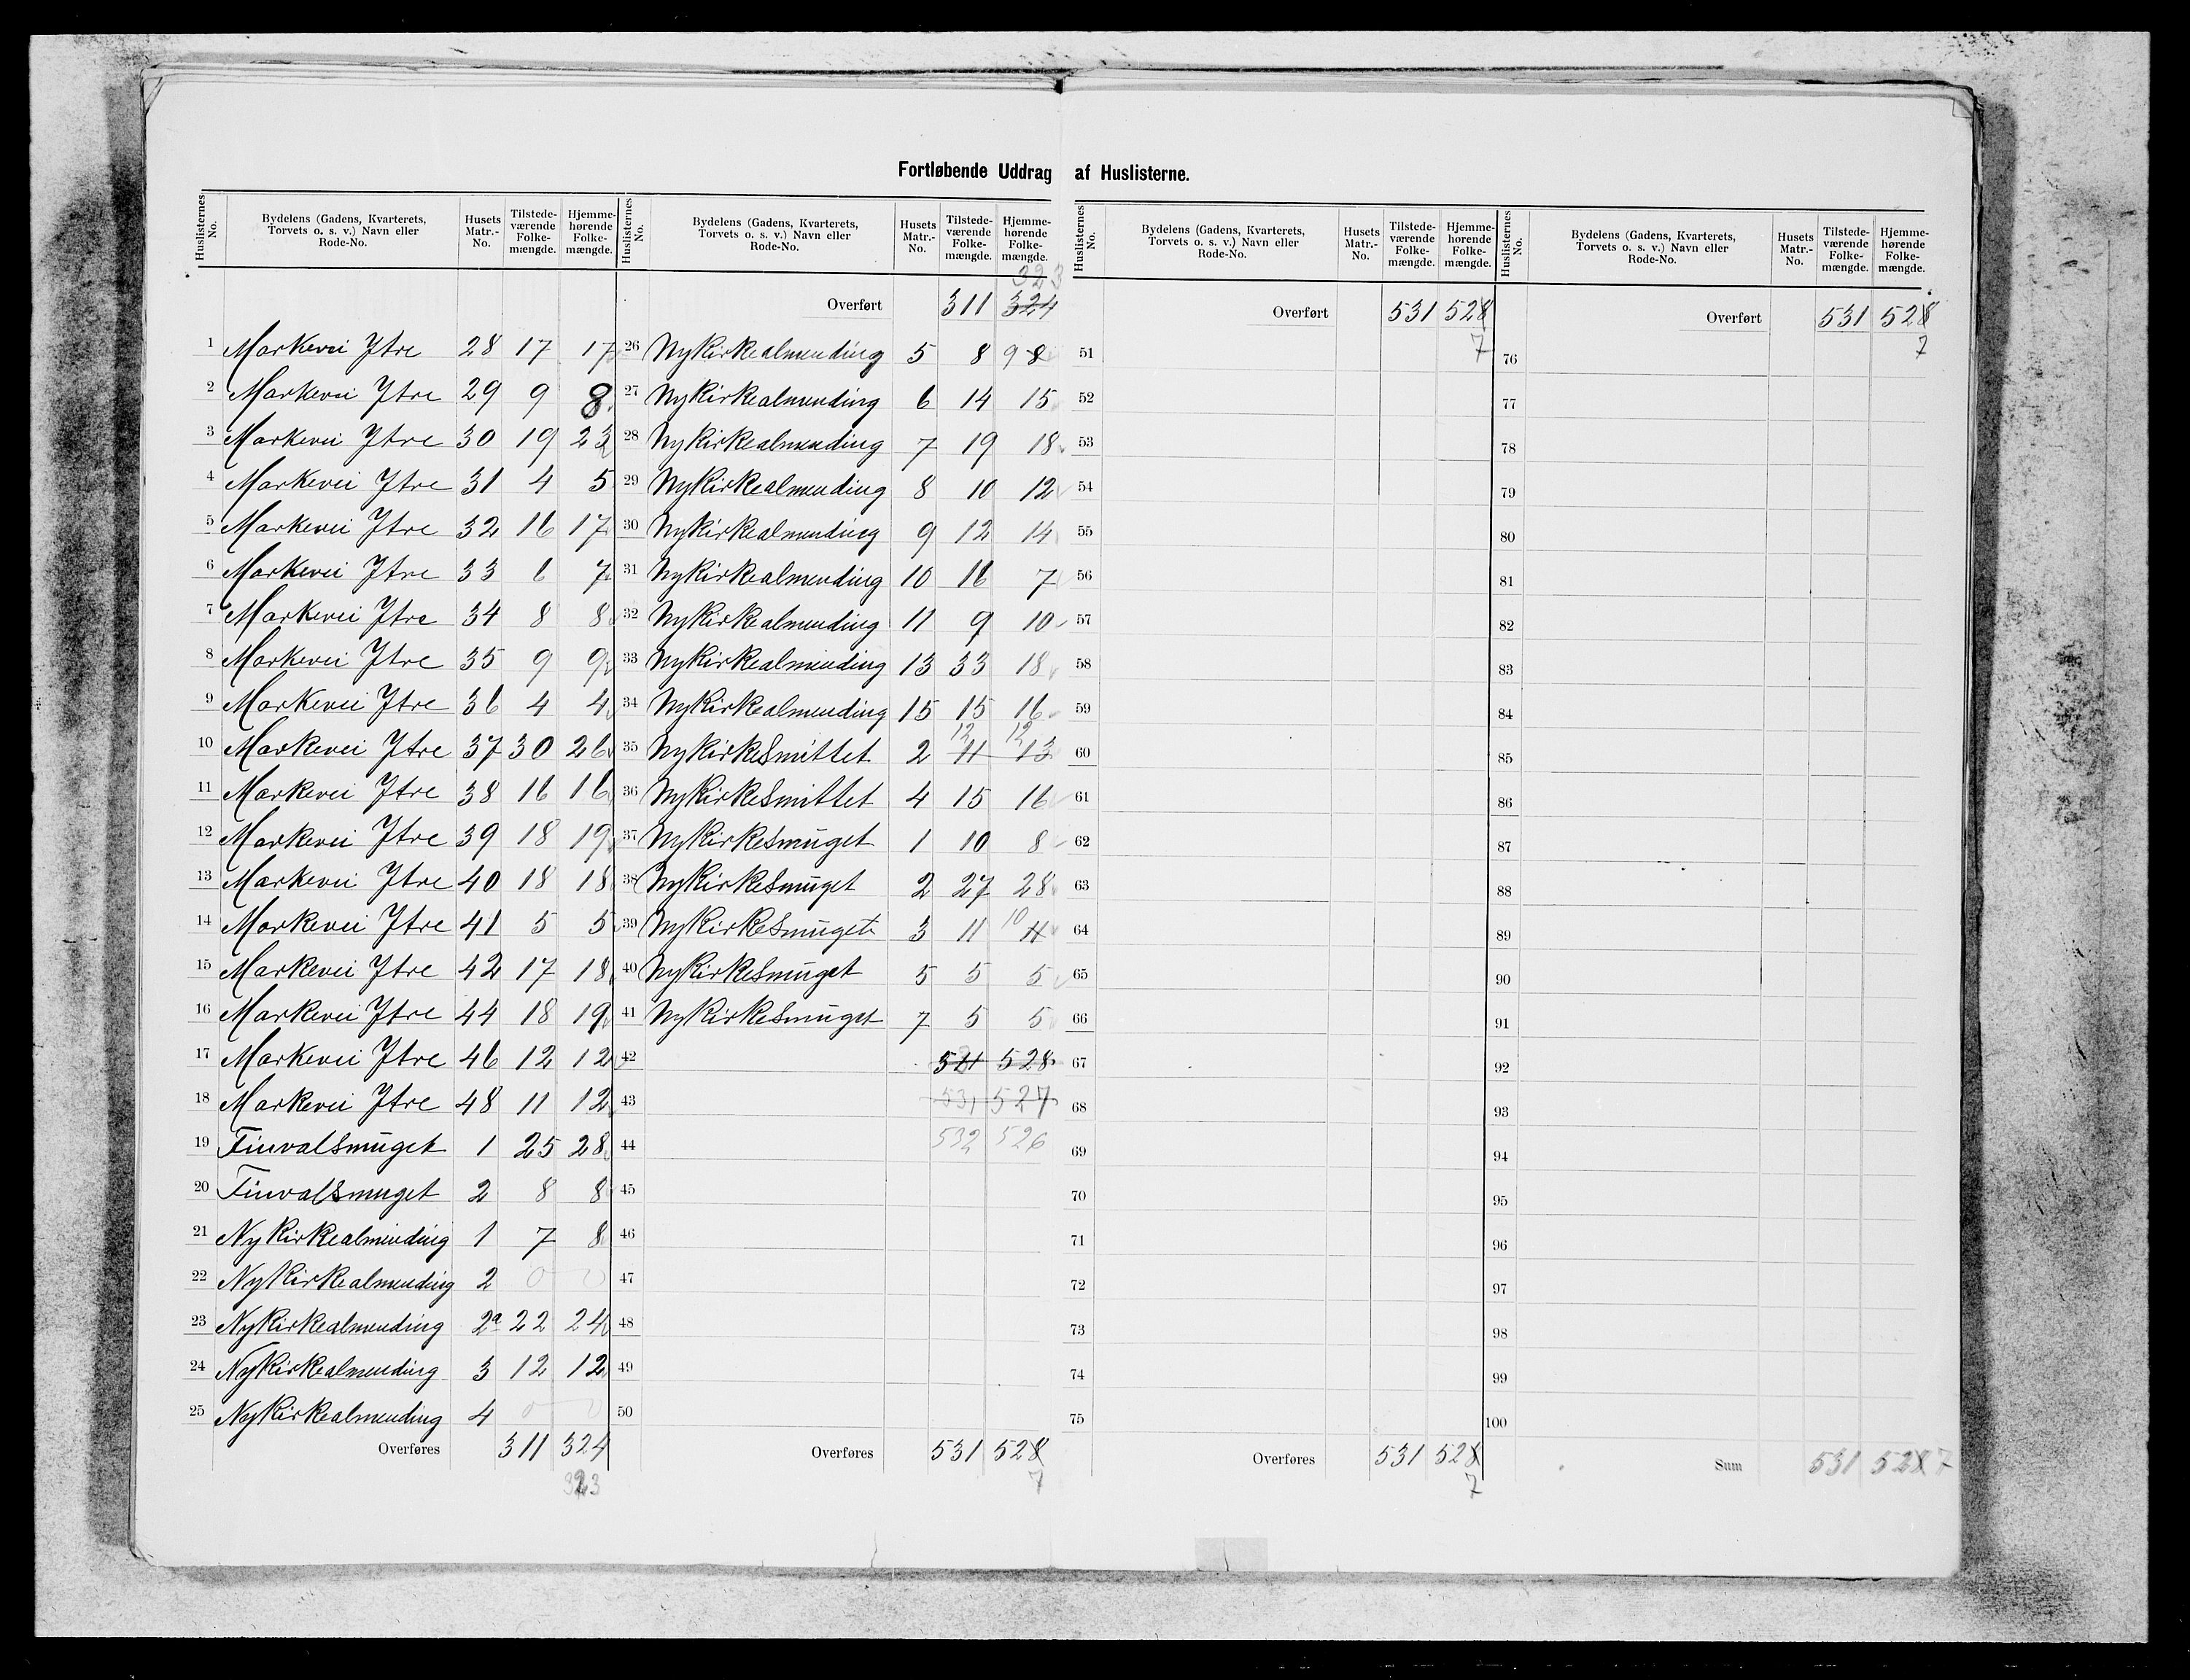 Fortløbende Uddrag af Huslisterne.
Huslisternes No. | Bydelens (Gadens, Kvarterets, Torvets o. s. v.) Navn eller Rode-No. | Husets Matr.-No. | Tilstede-værende Folke-mængde. | Hjemme-hørende Folke-mængde.
1 Markevei Ytre 28 17 17
2 Markevei Ytre 29 9 8
3 Markevei Ytre 30 19 23
4 Markevei Ytre 31 4 5
5 Markevei Ytre 32 16 17
6 Markevei Ytre 33 6 7
7 Markevei Ytre 34 8 8
8 Markevei Ytre 35 9 9
9 Markevei Ytre 36 4 4
10 Markevei Ytre 37 30 26
11 Markevei Ytre 38 16 16
12 Markevei Ytre 39 18 19
13 Markevei Ytre 40 18 18
14 Markevei Ytre 41 5 5
15 Markevei Ytre 42 17 18
16 Markevei Ytre 44 18 19
17 Markevei Ytre 46 12 12
18 Markevei Ytre 48 11 12
19 Finvalsmuget 1 25 28
20 Finvalsmuget 2 8 8
21 Nykirkealmending 1 7 8
22 Nykirkealmending 2 0 0
23 Nykirkealmending 2a 22 24
24 Nykirkealmending 3 12 12
25 Nykirkealmending 4 0 0
Overføres 311 324
323
Huslisternes No. | Bydelens (Gadens, Kvarterets, Torvets o. s. v.) Navn eller Rode-No. | Husets Matr.-No. | Tilstede-værende Folke-mængde. | Hjemme-hørende Folke-mængde.
323
Overført 311 324
26 Nykirkealmending 5 8 9 8
27 Nykirkealmending 6 14 15
28 Nykirkealmending 7 19 18
29 Nykirkealmending 8 10 12
30 Nykirkealmending 9 12 14
31 Nykirkealmending 10 16 7
32 Nykirkealmending 11 9 10
33 Nykirkealmending 13 33 18
34 Nykirkealmending 15 15 16
12 12
35 Nykirkesmittet 2 11 13
36 Nykirkesmittet 4 15 16
37 Nykirkesmuget 1 10 8
38 Nykirkesmuget 2 27 28
39 Nykirkesmuget 3 11 10 11
40 Nykirkesmuget 5 5 5
41 Nykirkesmuget 7 5 5
42 528
43 531 527
44 532 526
45
46
47
48
49
50
Overføres 531 528
7
Huslisternes No. | Bydelens (Gadens, Kvarterets, Torvets o. s. v.) Navn eller Rode-No. | Husets Matr.-No. | Tilstede-værende Folke-mængde. | Hjemme-hørende Folke-mængde.
Overført 531 528
51 7
52
53
54
55
56
57
58
59
60
61
62
63
64
65
66
67
68
69
70
71
72
73
74
75
Overføres 531 528
7
Huslisternes No. | Bydelens (Gadens, Kvarterets, Torvets o. s. v.) Navn eller Rode-No. | Husets Matr.-No. | Tilstede-værende Folke-mængde. | Hjemme-hørende Folke-mængde.
Overført 531 528
76 7
77
78
79
80
81
82
83
84
85
86
87
88
89
90
91
92
93
94
95
96
97
98
99
100
Sum 531 528 7